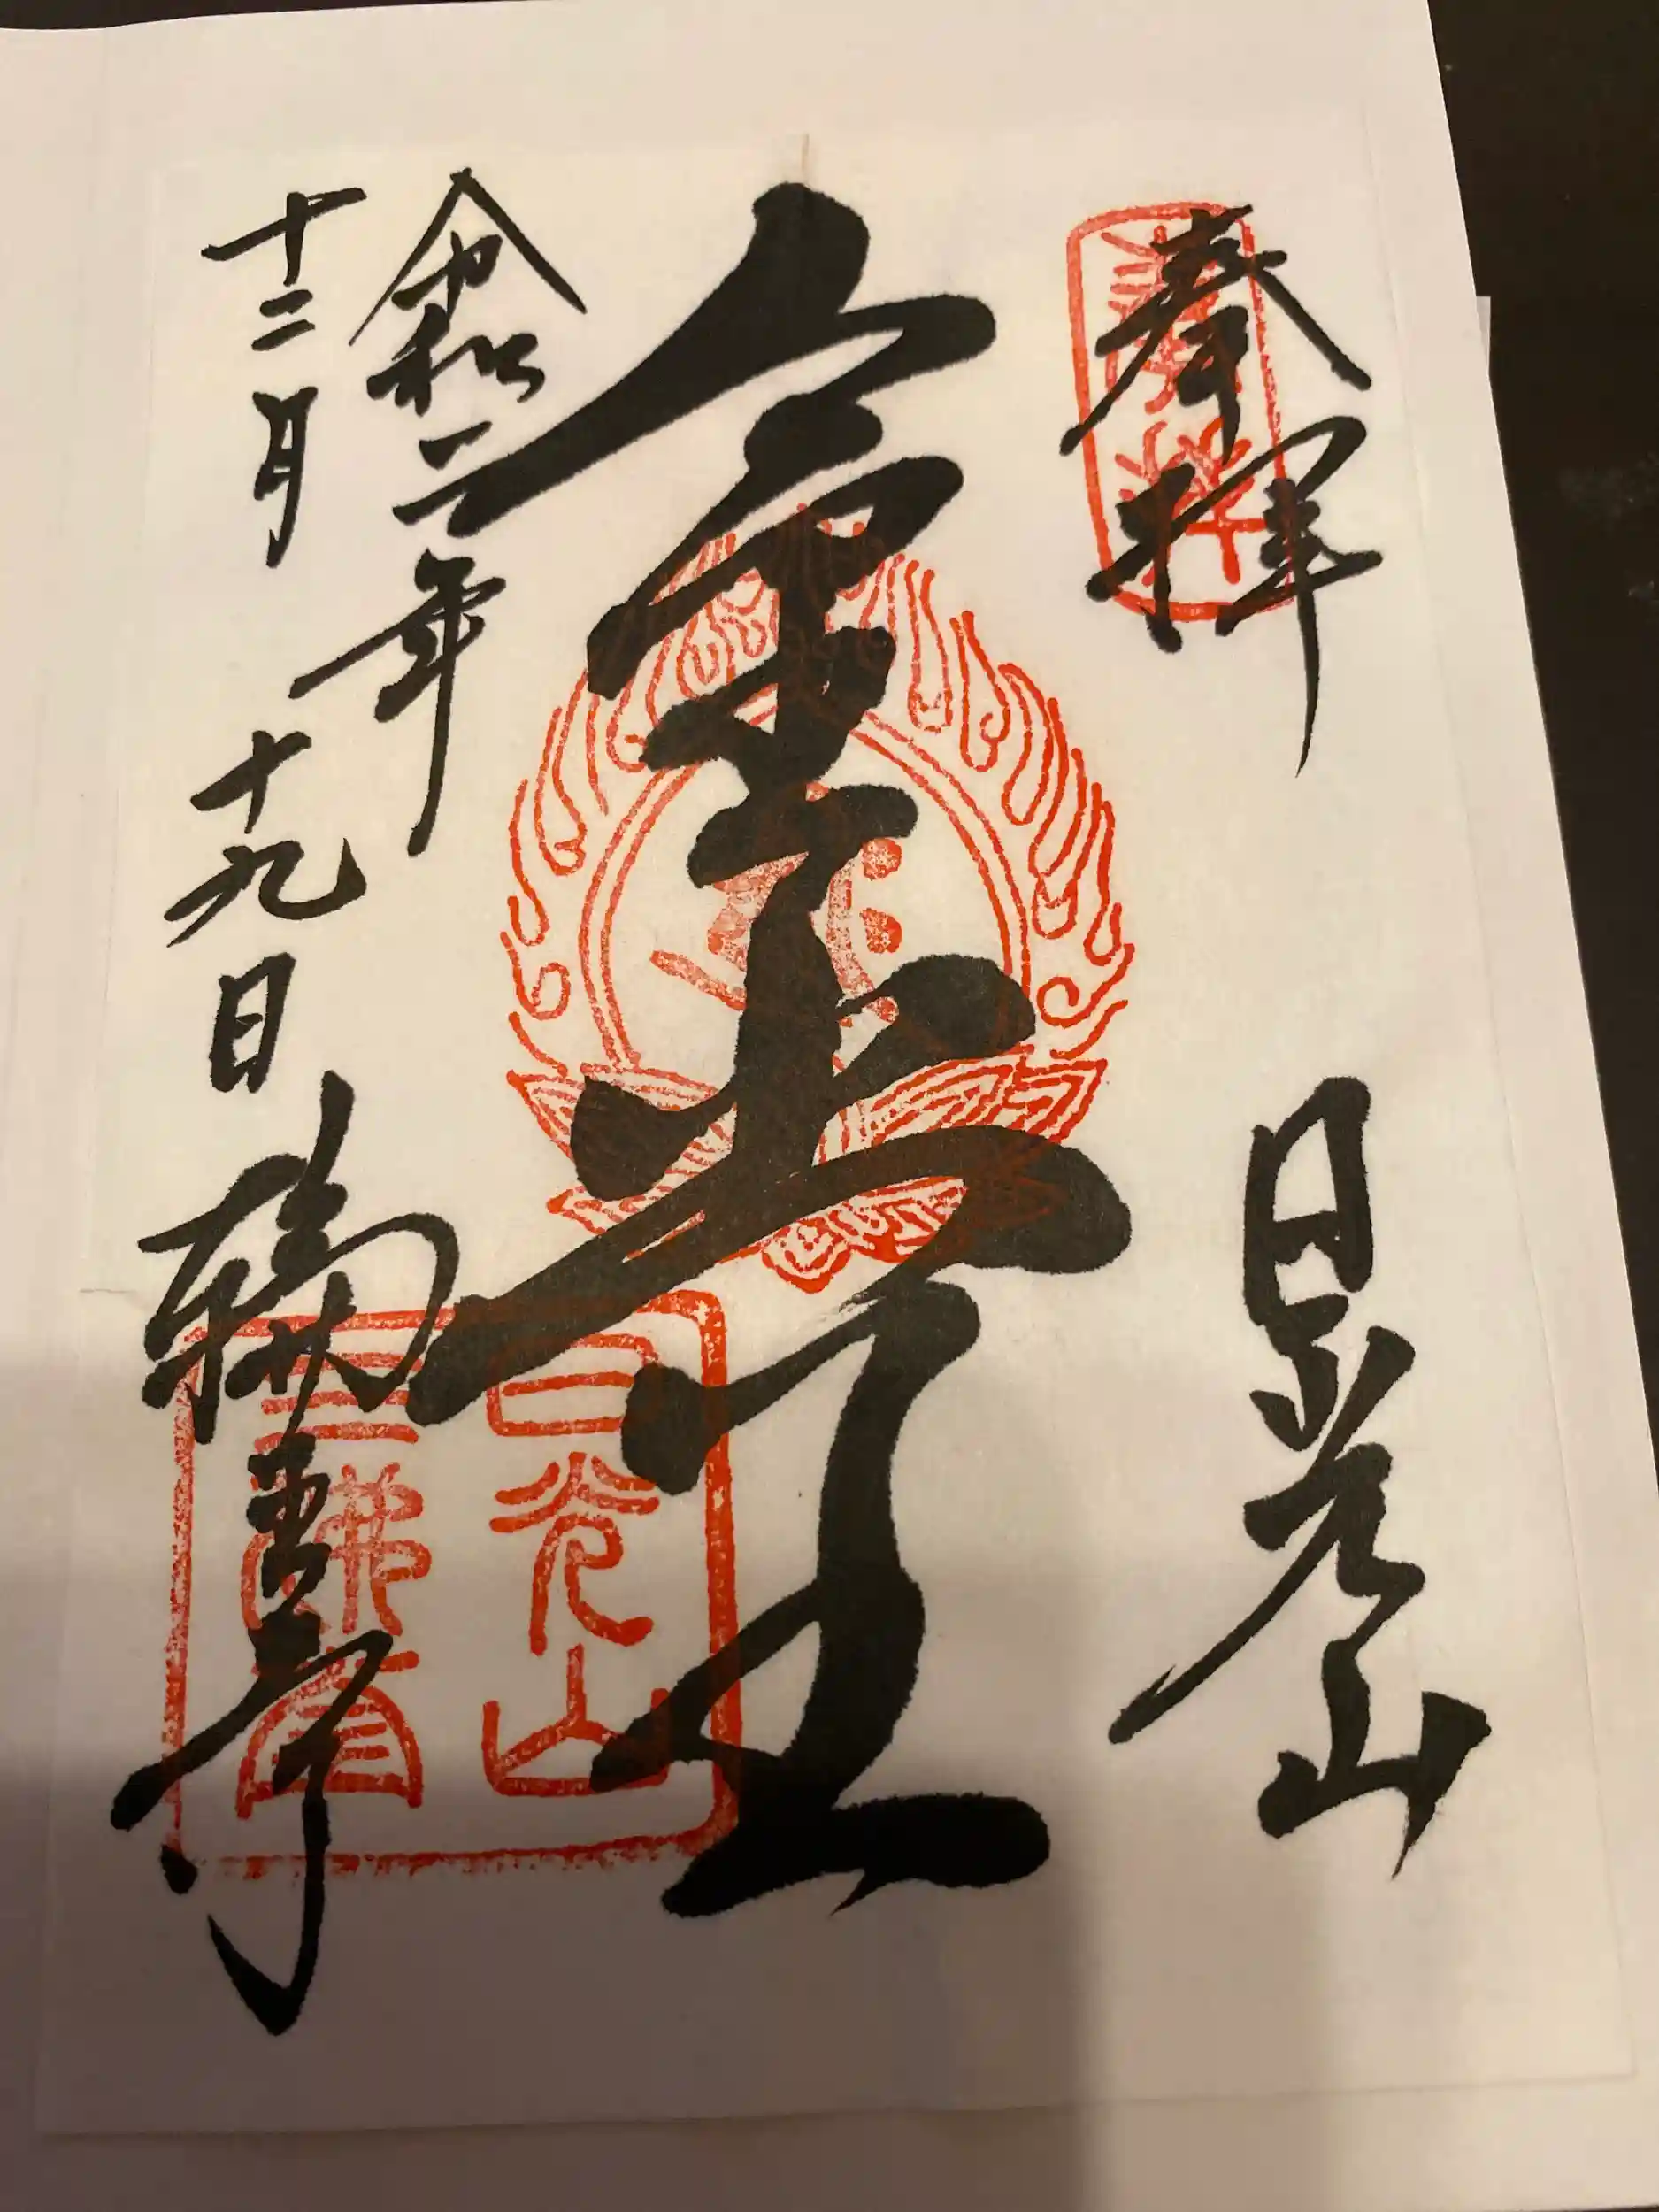 奉拝
日光山
金堂
令和二年
十二月十九日
輪王寺
日光山
三佛堂